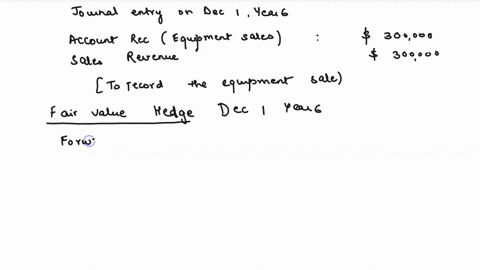 Journal entry on Dec 1, Year 6
Account Rec (Equpment sales) : $ 300,000
Sales Revenue $ 300,000
[To record the equpment sale)
Fair value Hedge Dec 1 Year 6
Forw